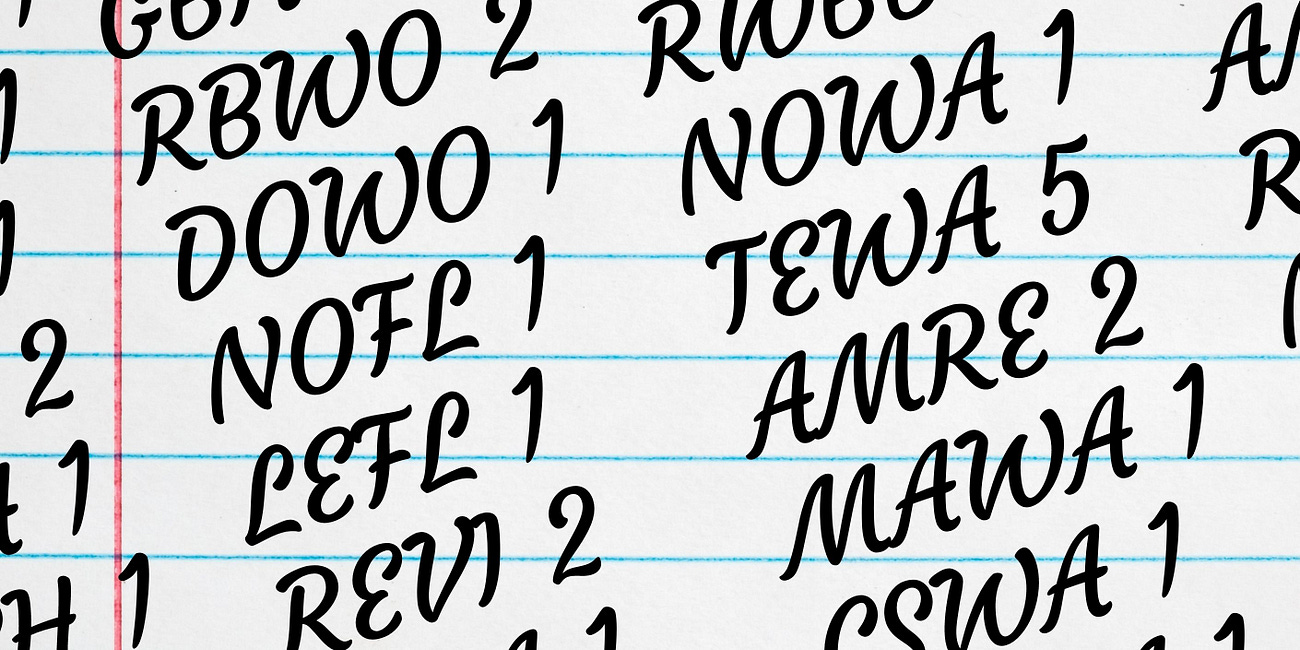 RBWO 2
DOWO 1
NOFL 1
LEFL 1
REVI 2
NOWA 1
TEWA 5
AMRE 2
MAWA 1
CSWA 1
2
1
1